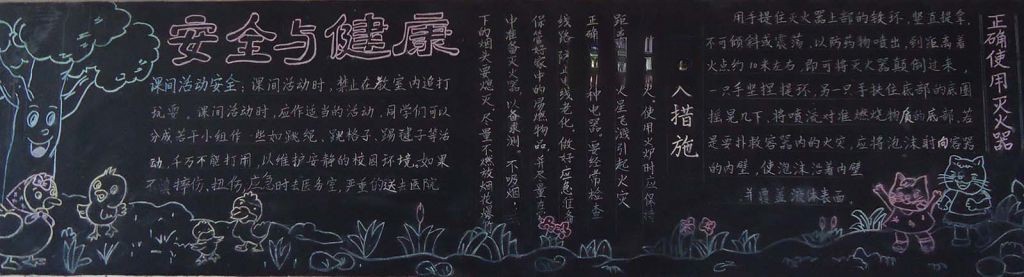 安全与健康
课间活动安全：课间活动时，禁止在教室内追打
扰耍。课间活动时，应作适当的活动，同学们可以
分成若干小组作一些如跳绳、跳格子、踢毽子等活
动，千万不能打闹，以维护安静的校园环境。如果
不慎摔伤、扭伤，应急时去医务室，严重的送去医院
入措施
使用火炉时应保持
距 火星飞溅引起火灾
正确 种电器，要经常检查
线路，防止线老化，做好应急准备
保管好家中的易燃物品，并尽量在
中准备灭火器，以备不测，不吸烟，
下的烟头要熄灭，尽量不燃放烟花爆
正确使用灭火器
用手提住灭火器上部的铁环，竖直提拿，
不可倾斜或震荡，以防药物喷出，到距离着
火点约10米左右，即可将灭火器颠倒过来，
一只手坚捏提环，另一只手扶住底部的底圈
摇晃几下，将喷液对准燃烧物质的底部，若
是要扑救容器内的火灾，应将泡沫射向容器
的内壁，使泡沫沿着内壁
并覆盖液体表面。